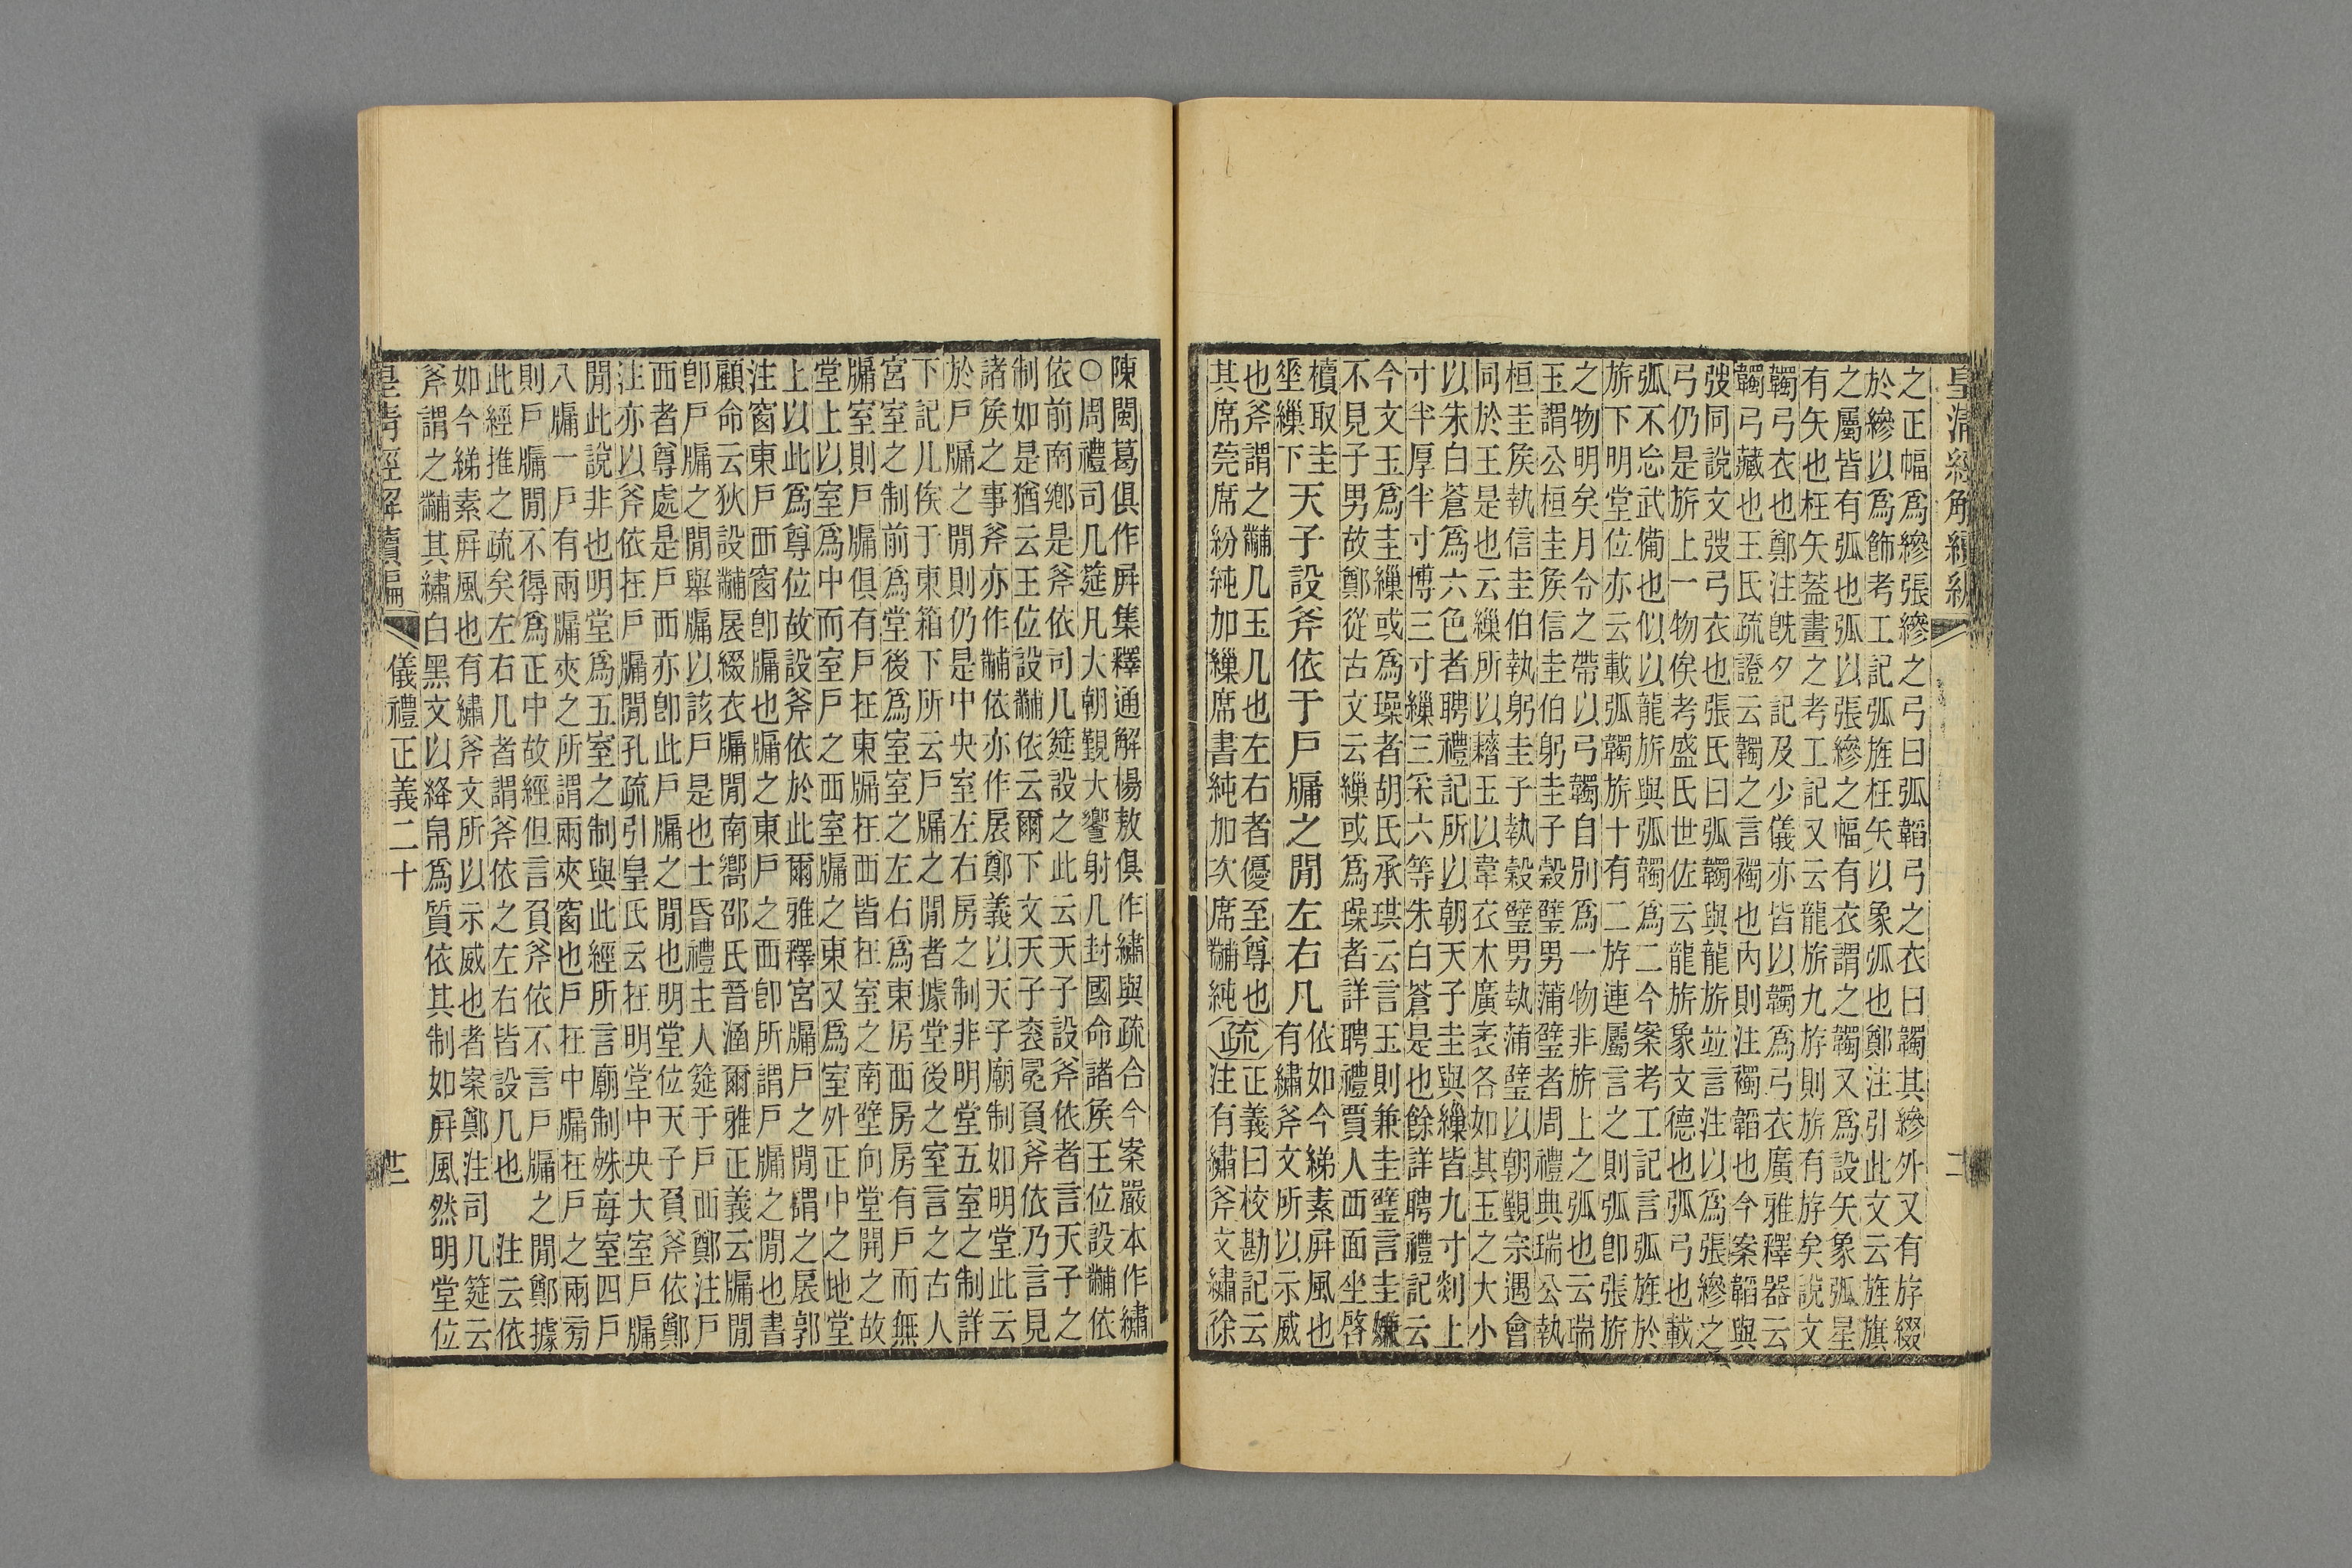 皇清經解續編
二
之正幅爲縿張縿之弓曰弧韜弓之衣曰韣其縿外又有斿綴
於縿以爲飾考工記弧旌枉矢以象弧也鄭注引此文云旌旗
之屬皆有弧也弧以張縿之幅有衣謂之韣又爲設矢象弧星
有矢也枉矢蓋畫之考工記又云龍旂九斿則旂有斿矣說文
韣弓衣也鄭注旣夕記及少儀亦皆以韣爲弓衣廣雅釋器云
韣弓藏也王氏疏證云韣之言襡也內則注襡韜也今案韜與
弢同說文弢弓衣也張氏曰弧韣與龍旂竝言注以爲張縿之
弓仍是旂上一物俟考盛氏世佐云龍旂象文德也弧弓也載
弧不忘武備也似以龍旂與弧韣爲二今案考工記言弧旌於
旂下明堂位亦云載弧韣旂十有二斿連屬言之則弧卽張旂
之物明矣月令之帶以弓韣自別爲一物非旂上之弧也云瑞
玉謂公桓圭矦信圭伯躬圭子穀璧男蒲璧者周禮典瑞公執
桓圭矦執信圭伯執躬圭子執穀璧男執蒲璧以朝覲宗遇會
同於王是也云繅所以藉玉以韋衣木廣袤各如其玉之大小
以朱白蒼爲六色者聘禮記所以朝天子圭與繅皆九寸剡上
寸半厚半寸博三寸繅三采六等朱白蒼是也餘詳聘禮記云
今文玉爲圭繅或爲璪者胡氏承珙云言玉則兼圭璧言圭嫌
不見子男故鄭從古文云繅或爲璪者詳聘禮賈人西面坐啓
櫝取圭
坐繅下
天子設斧依于戶牖之閒左右几
依如今綈素屛風也
有繡斧文所以示威
也斧謂之黼几玉几也左右者優至尊也
其席莞席紛純加繅席書純加次席黼純
疏
正義曰校勘記云
注有繡斧文繡徐
陳閩葛俱作屛集釋通解楊敖俱作繡與疏合今案嚴本作繡
○周禮司几筵凡大朝覲大饗射凡封國命諸矦王位設黼依
依前南鄉是斧依司几筵設之此云天子設斧依者言天子之
制如是猶云王位設黼依云爾下文天子袞冕負斧依乃言見
諸矦之事斧亦作黼依亦作扆鄭義以天子廟制如明堂此云
於戶牖之閒則仍是中央室左右房之制非明堂五室之制詳
下記几俟于東箱下所云戶牖之閒者據堂後之室言之古人
宮室之制前爲堂後爲室室之左右爲東房西房房有戶而無
牖室則戶牖俱有戶在東牖在西皆在室之南壁向堂開之故
堂上以室爲中而室戶之西室牖之東又爲室外正中之地堂
上以此爲尊位故設斧依於此爾雅釋宮牖戶之閒謂之扆郭
注窗東戶西窗卽牖也牖之東戶之西卽所謂戶牖之閒也書
顧命云狄設黼扆綴衣牖閒南嚮邵氏晉涵爾雅正義云牖閒
卽戶牖之閒舉牖以該戶是也士昏禮主人筵于戶西鄭注戶
西者尊處是戶西亦卽此戶牖之閒也明堂位天子負斧依鄭
注亦以斧依在戶牖閒孔疏引皇氏云在明堂中央大室戶牖
閒此說非也明堂爲五室之制與此經所言廟制姝每室四戶
八牖一戶有兩牖夾之所謂兩夾窗也戶在中牖在戶之兩旁
則戶牖閒不得爲正中故經但言負斧依不言戶牖之閒鄭據
此經推之疏矣左右几者謂斧依之左右皆設几也　注云依
如今綈素屛風也有繡斧文所以示威也者案鄭注司几筵云
斧謂之黼其繡白黑文以絳帛爲質依其制如屛風然明堂位
皇清經解續編
儀禮正義二十